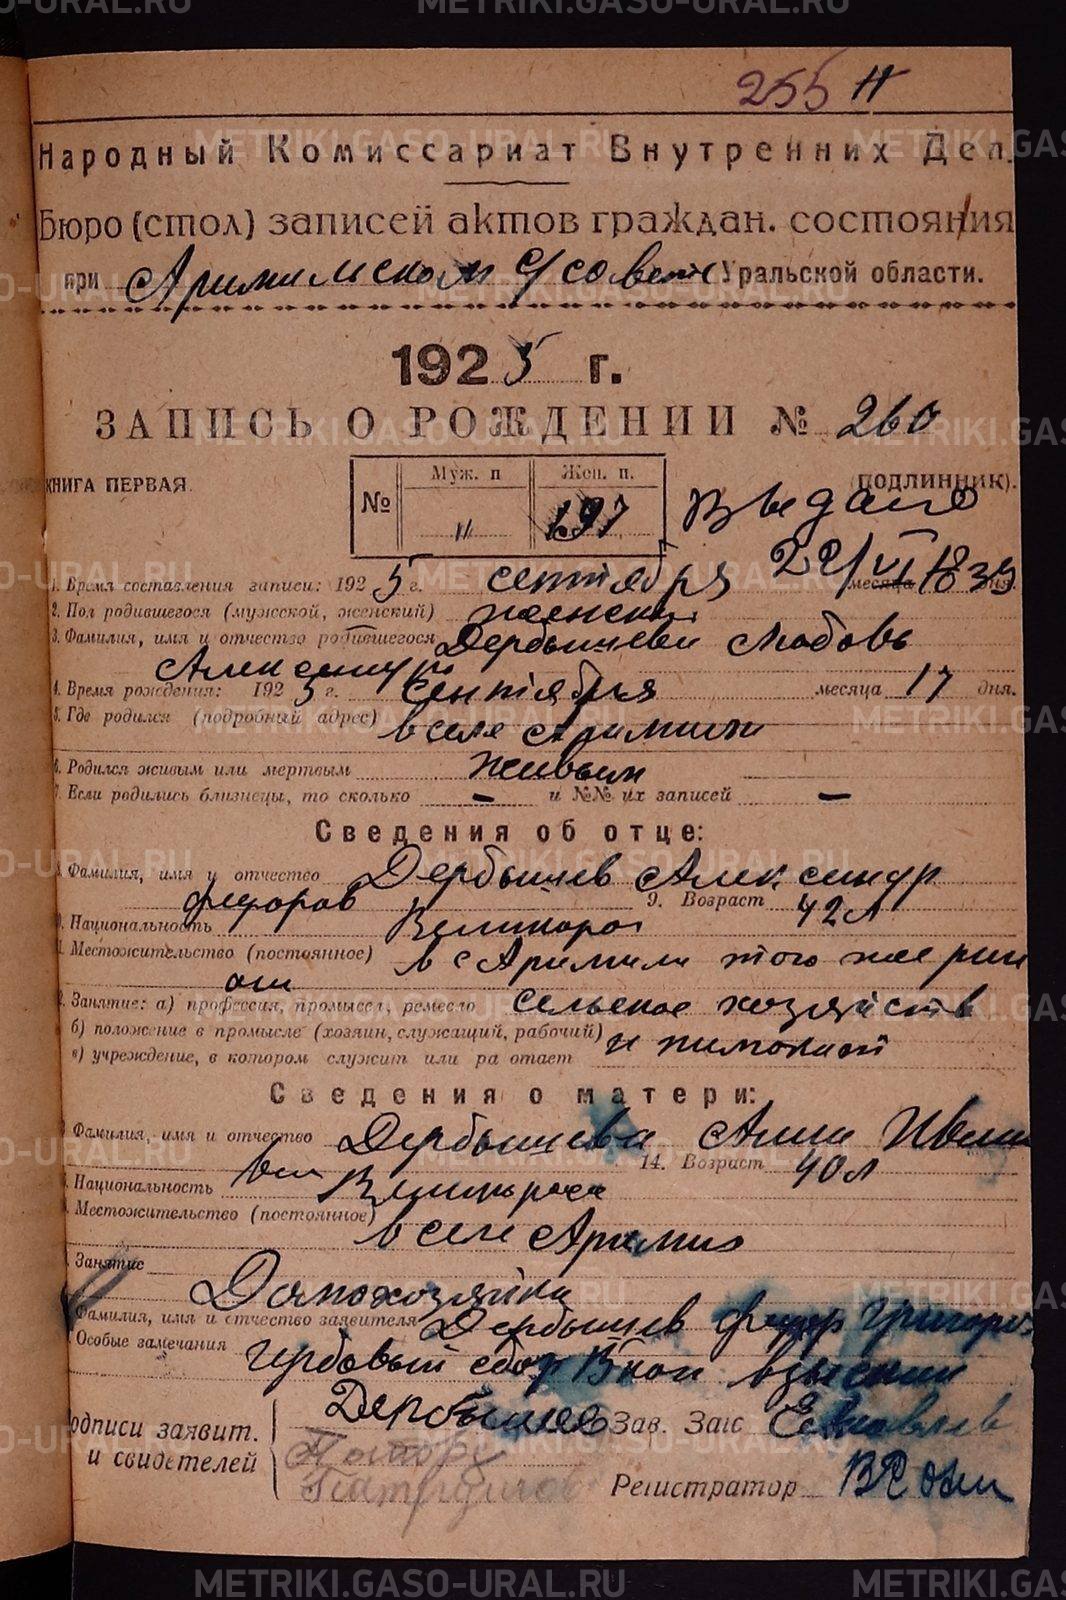 255
Народный Комиссариат Внутренних Дел.
Бюро (стол) записей актов граждан. состояния
при Арамильском с/совете Уральской области.
1925 г.
ЗАПИСЬ О РОЖДЕНИИ № 260
КНИГА ПЕРВАЯ. (ПОДЛИННИК).
№ Муж. п. Жен. п.
" 197
Выдано
22/VI 1939
1. Время составления записи: 1925 г. сентября месяца дня.
2. Пол родившегося (мужской, женский) женский
3. Фамилия, имя и отчество родившегося Дербышева Любовь
Александр
4. Время рождения: 1925 г. сентября месяца 17 дня.
5. Где родился (подробный адрес) в селе Арамили
6. Родился живым или мертвым живым
7. Если родились близнецы, то сколько — и №№ их записей —
Сведения об отце:
8. Фамилия, имя и отчество Дербышев Александр
Федоров 9. Возраст 42 л
10. Национальность Великорос
11. Местожительство (постоянное) в с Арамили того же рай
она
12. Занятие: а) профессия, промысел, ремесло сельское хозяйств
б) положение в промысле (хозяин, служащий, рабочий)
в) учреждение, в котором служит или ра отает
Сведения о матери:
Фамилия, имя и отчество Дербышева Анна Иван
вна 14. Возраст 40 л
Национальность Великоросс
Местожительство (постоянное) в селе Арамил
Занятие
Домохозяйка
Фамилия, имя и отчество заявителя Дербышев Федор Григоро
Особые замечания Гербовый сбор 15 коп взыскан
одписи заявит. Дербышев Зав. Загс
и свидетелей
Регистратор
METRIKI.GASO-URAL.RU